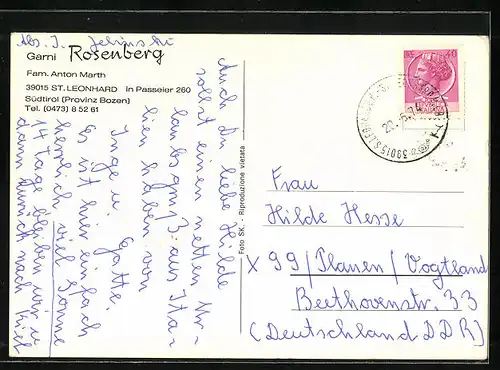 Abs. I. Jelinski
Garni Rosenberg
Fam. Anton Marth
39015 ST. LEONHARD in Passeier 260
Südtirol (Provinz Bozen)
Tel. (0473) 8 52 61
Auch Du liebe Hilde
sollst einen netten Ur-
laubsgruß aus Ita-
lien haben von
Inge u. Gatte.
Es ist hier einfach
herrlich, viel Sonne
14 Tage bleiben wir u.
dann zurück nach Kiel
Foto SK. - Riproduzione vietata
40
20.-6.74
39015 S. LEONARDO
Frau
Hilde Hesse
X 99/Plauen/Vogtland
Beethovenstr. 33
(Deutschland DDR)